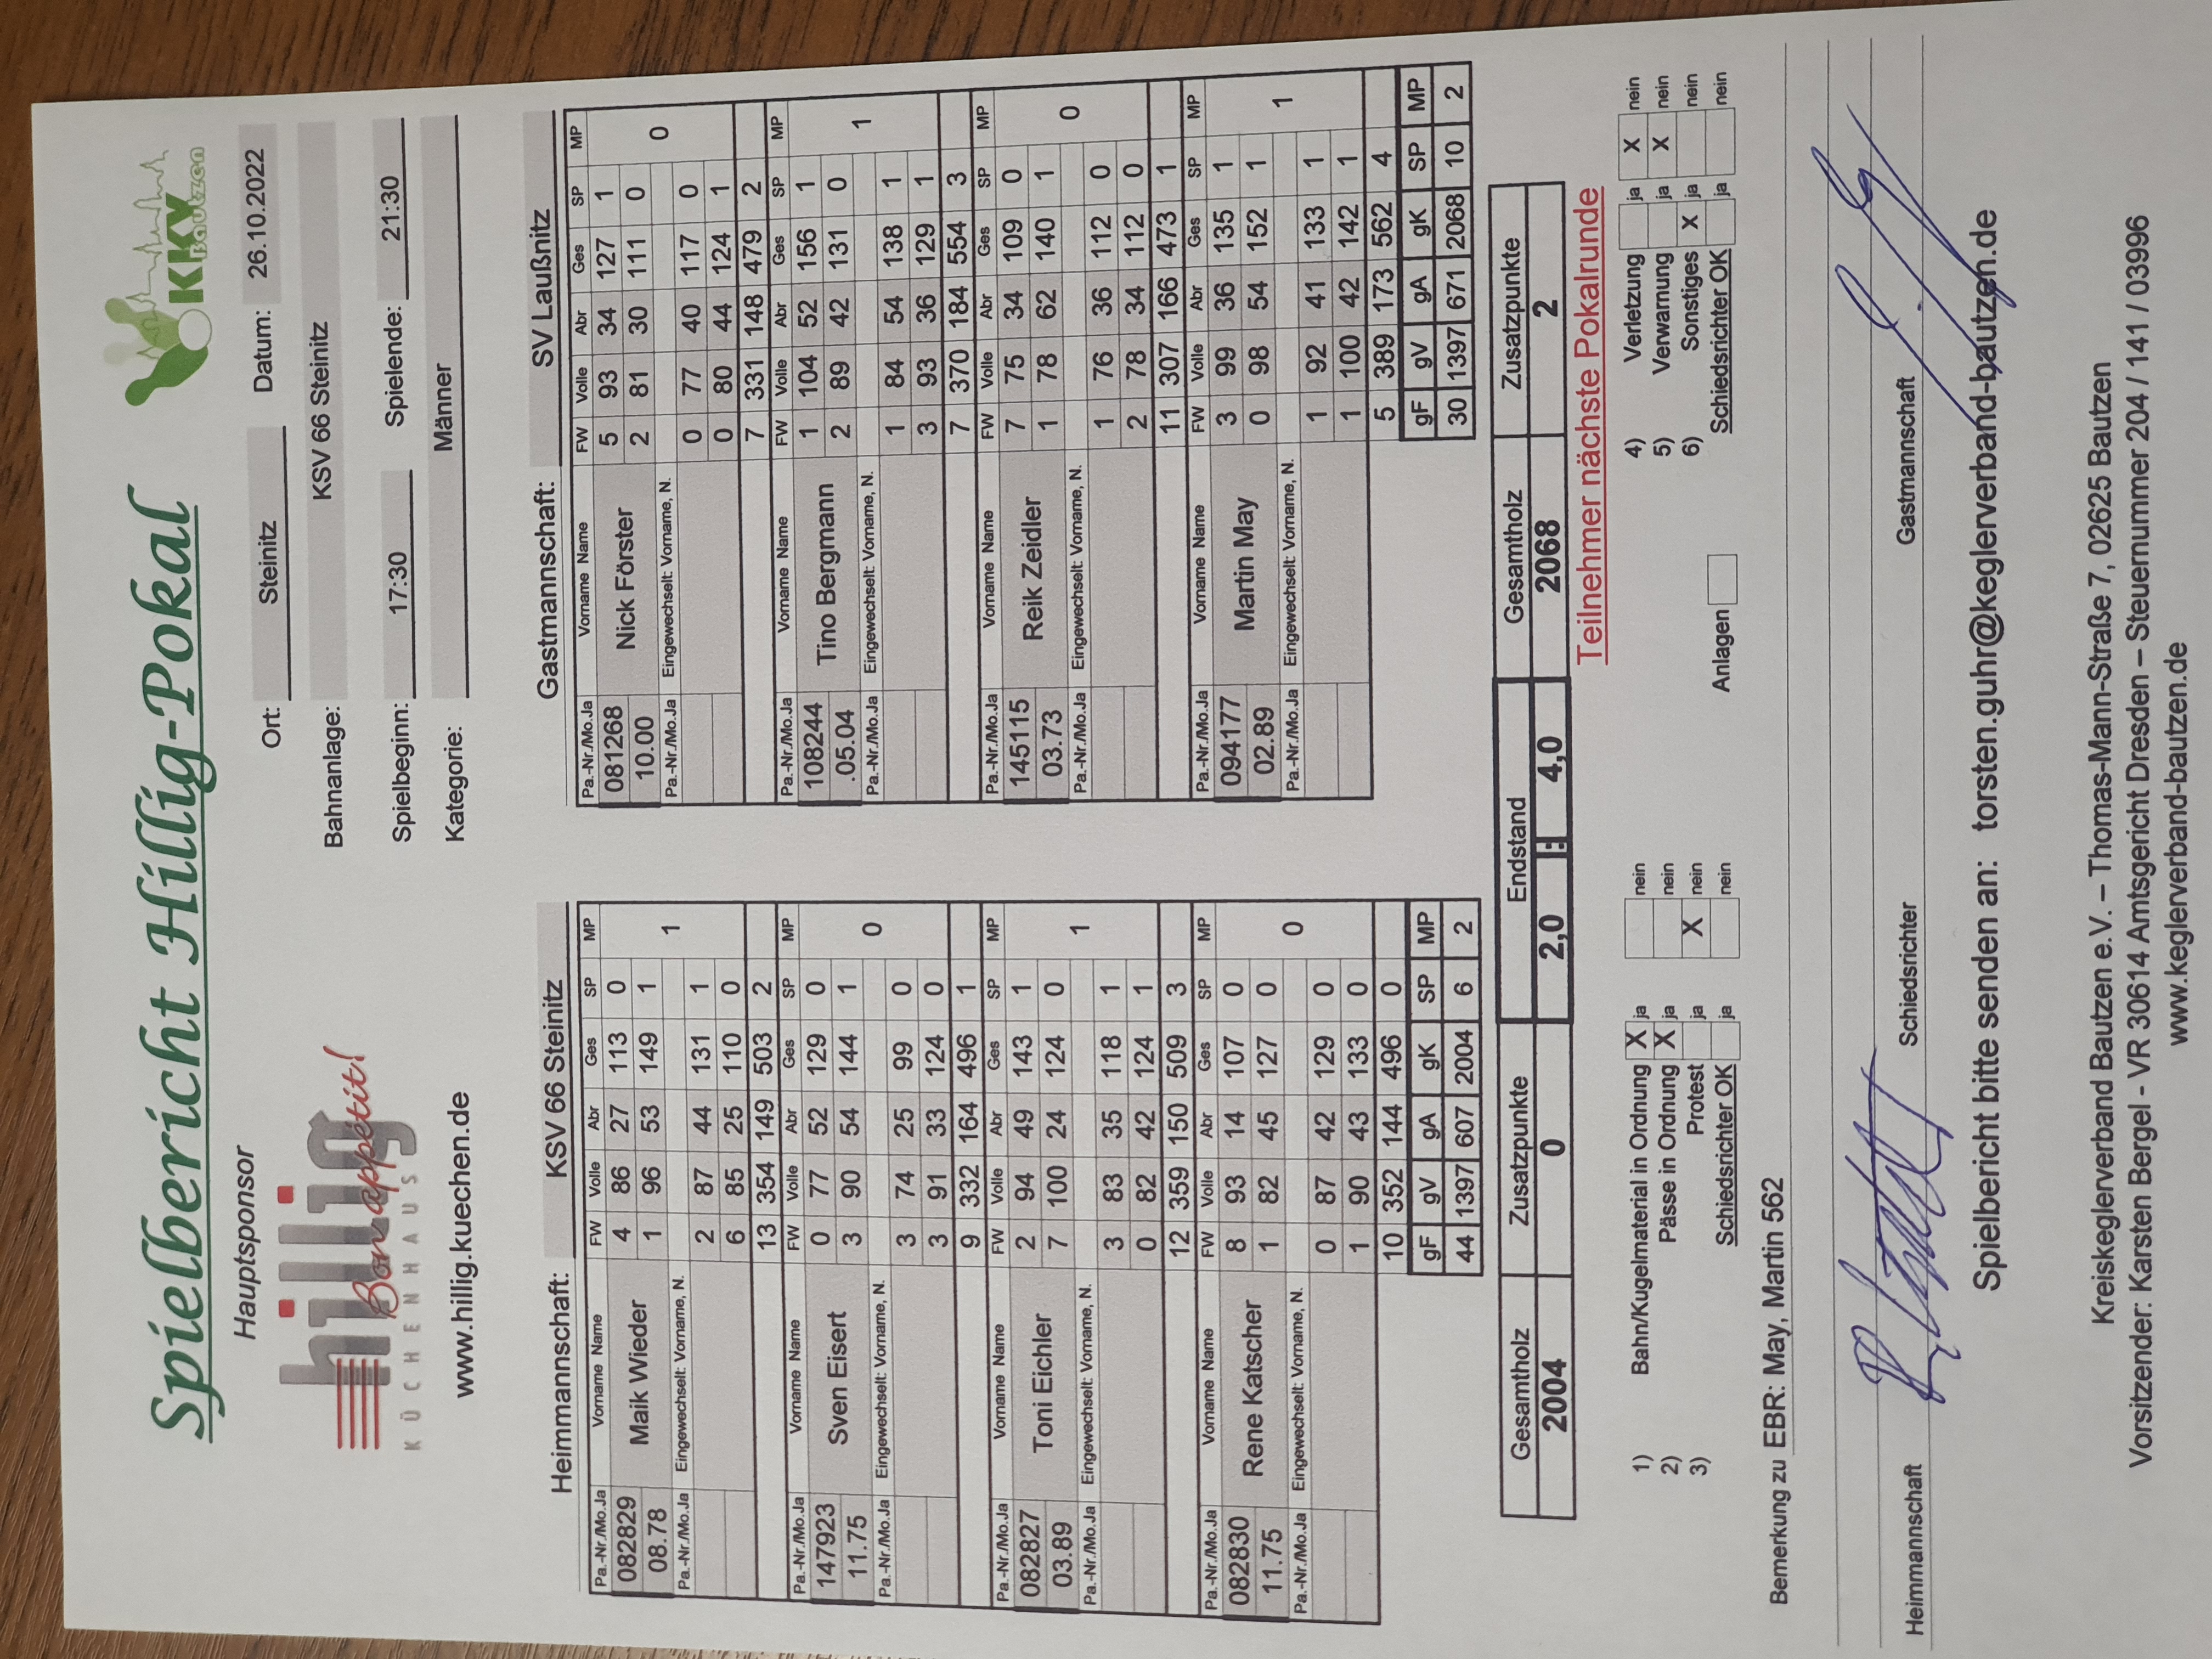 Spielbericht Hillig-Pokal
KKV
Bautzen
Hauptsponsor
hillig
Bon appétit!
KÜCHENHAUS
www.hillig.kuechen.de
Ort: Steinitz Datum: 26.10.2022
Bahnanlage: KSV 66 Steinitz
Spielbeginn: 17:30 Spielende: 21:30
Kategorie: Männer
Heimmannschaft: KSV 66 Steinitz
Pa.-Nr./Mo.Ja Vorname Name FW Volle Abr Ges SP MP
082829 Maik Wieder 4 86 27 113 0 1
08.78 1 96 53 149 1
Pa.-Nr./Mo.Ja Eingewechselt: Vorname, N.
2 87 44 131 1
6 85 25 110 0
13 354 149 503 2
Pa.-Nr./Mo.Ja Vorname Name FW Volle Abr Ges SP MP
147923 Sven Eisert 0 77 52 129 0 0
11.75 3 90 54 144 1
Pa.-Nr./Mo.Ja Eingewechselt: Vorname, N.
3 74 25 99 0
3 91 33 124 0
9 332 164 496 1
Pa.-Nr./Mo.Ja Vorname Name FW Volle Abr Ges SP MP
082827 Toni Eichler 2 94 49 143 1 1
03.89 7 100 24 124 0
Pa.-Nr./Mo.Ja Eingewechselt: Vorname, N.
3 83 35 118 1
0 82 42 124 1
12 359 150 509 3
Pa.-Nr./Mo.Ja Vorname Name FW Volle Abr Ges SP MP
082830 Rene Katscher 8 93 14 107 0 0
11.75 1 82 45 127 0
Pa.-Nr./Mo.Ja Eingewechselt: Vorname, N.
0 87 42 129 0
1 90 43 133 0
10 352 144 496 0
gF gV gA gK SP MP
44 1397 607 2004 6 2
Gastmannschaft: SV Laußnitz
Pa.-Nr./Mo.Ja Vorname Name FW Volle Abr Ges SP MP
081268 Nick Förster 5 93 34 127 1 0
10.00 2 81 30 111 0
Pa.-Nr./Mo.Ja Eingewechselt: Vorname, N.
0 77 40 117 0
0 80 44 124 1
7 331 148 479 2
Pa.-Nr./Mo.Ja Vorname Name FW Volle Abr Ges SP MP
108244 Tino Bergmann 1 104 52 156 1 1
.05.04 2 89 42 131 0
Pa.-Nr./Mo.Ja Eingewechselt: Vorname, N.
1 84 54 138 1
3 93 36 129 1
7 370 184 554 3
Pa.-Nr./Mo.Ja Vorname Name FW Volle Abr Ges SP MP
145115 Reik Zeidler 7 75 34 109 0 0
03.73 1 78 62 140 1
Pa.-Nr./Mo.Ja Eingewechselt: Vorname, N.
1 76 36 112 0
2 78 34 112 0
11 307 166 473 1
Pa.-Nr./Mo.Ja Vorname Name FW Volle Abr Ges SP MP
094177 Martin May 3 99 36 135 1 1
02.89 0 98 54 152 1
Pa.-Nr./Mo.Ja Eingewechselt: Vorname, N.
1 92 41 133 1
1 100 42 142 1
5 389 173 562 4
gF gV gA gK SP MP
30 1397 671 2068 10 2
Gesamtholz Zusatzpunkte Endstand Gesamtholz Zusatzpunkte
2004 0 2,0 : 4,0 2068 2
Teilnehmer nächste Pokalrunde
1) Bahn/Kugelmaterial in Ordnung X ja nein 4) Verletzung ja X nein
2) Pässe in Ordnung X ja nein 5) Verwarnung ja X nein
3) Protest ja X nein 6) Sonstiges X ja nein
Schiedsrichter OK ja nein Anlagen Schiedsrichter OK ja nein
Bemerkung zu EBR: May, Martin 562
Heimmannschaft Schiedsrichter Gastmannschaft
Spielbericht bitte senden an: torsten.guhr@keglerverband-bautzen.de
Kreiskeglerverband Bautzen e.V. – Thomas-Mann-Straße 7, 02625 Bautzen
Vorsitzender: Karsten Bergel - VR 30614 Amtsgericht Dresden – Steuernummer 204 / 141 / 03996
www.keglerverband-bautzen.de